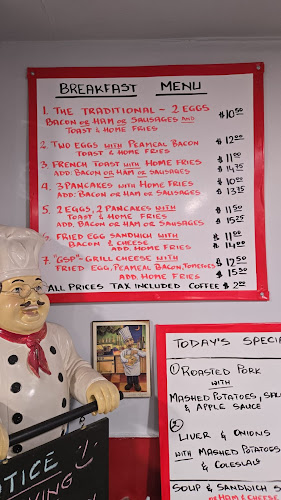 BREAKFAST MENU
1. THE TRADITIONAL - 2 EGGS
BACON OR HAM OR SAUSAGES AND $10.50
TOAST & HOME FRIES
2. TWO EGGS WITH PEAMEAL BACON $12.00
TOAST & HOME FRIES
3. FRENCH TOAST WITH HOME FRIES $11.00
ADD. BACON OR HAM OR SAUSAGES $14.75
4. 3 PANCAKES WITH HOME FRIES $10.00
ADD. BACON OR HAM OR SAUSAGES $13.75
5. 2 EGGS, 2 PANCAKES WITH $11.50
TOAST & HOME FRIES
ADD. BACON OR HAM OR SAUSAGES $15.25
6. FRIED EGG SANDWICH WITH $11.50
BACON & CHEESE
ADD. HOME FRIES $14.00
7. "GSP"-GRILL CHEESE WITH
FRIED EGG, PEAMEAL BACON, TOMATOES $12.50
ADD. HOME FRIES $15.50
ALL PRICES TAX INCLUDED COFFEE $2.00
TODAY'S SPECIA
1 ROASTED PORK
WITH
MASHED POTATOES, SAL
& APPLE SAUCE
2
LIVER & ONIONS
WITH MASHED POTATOES
& COLESLAW
SOUP & SANDWICH S
OR HAM & CHEES
TICE